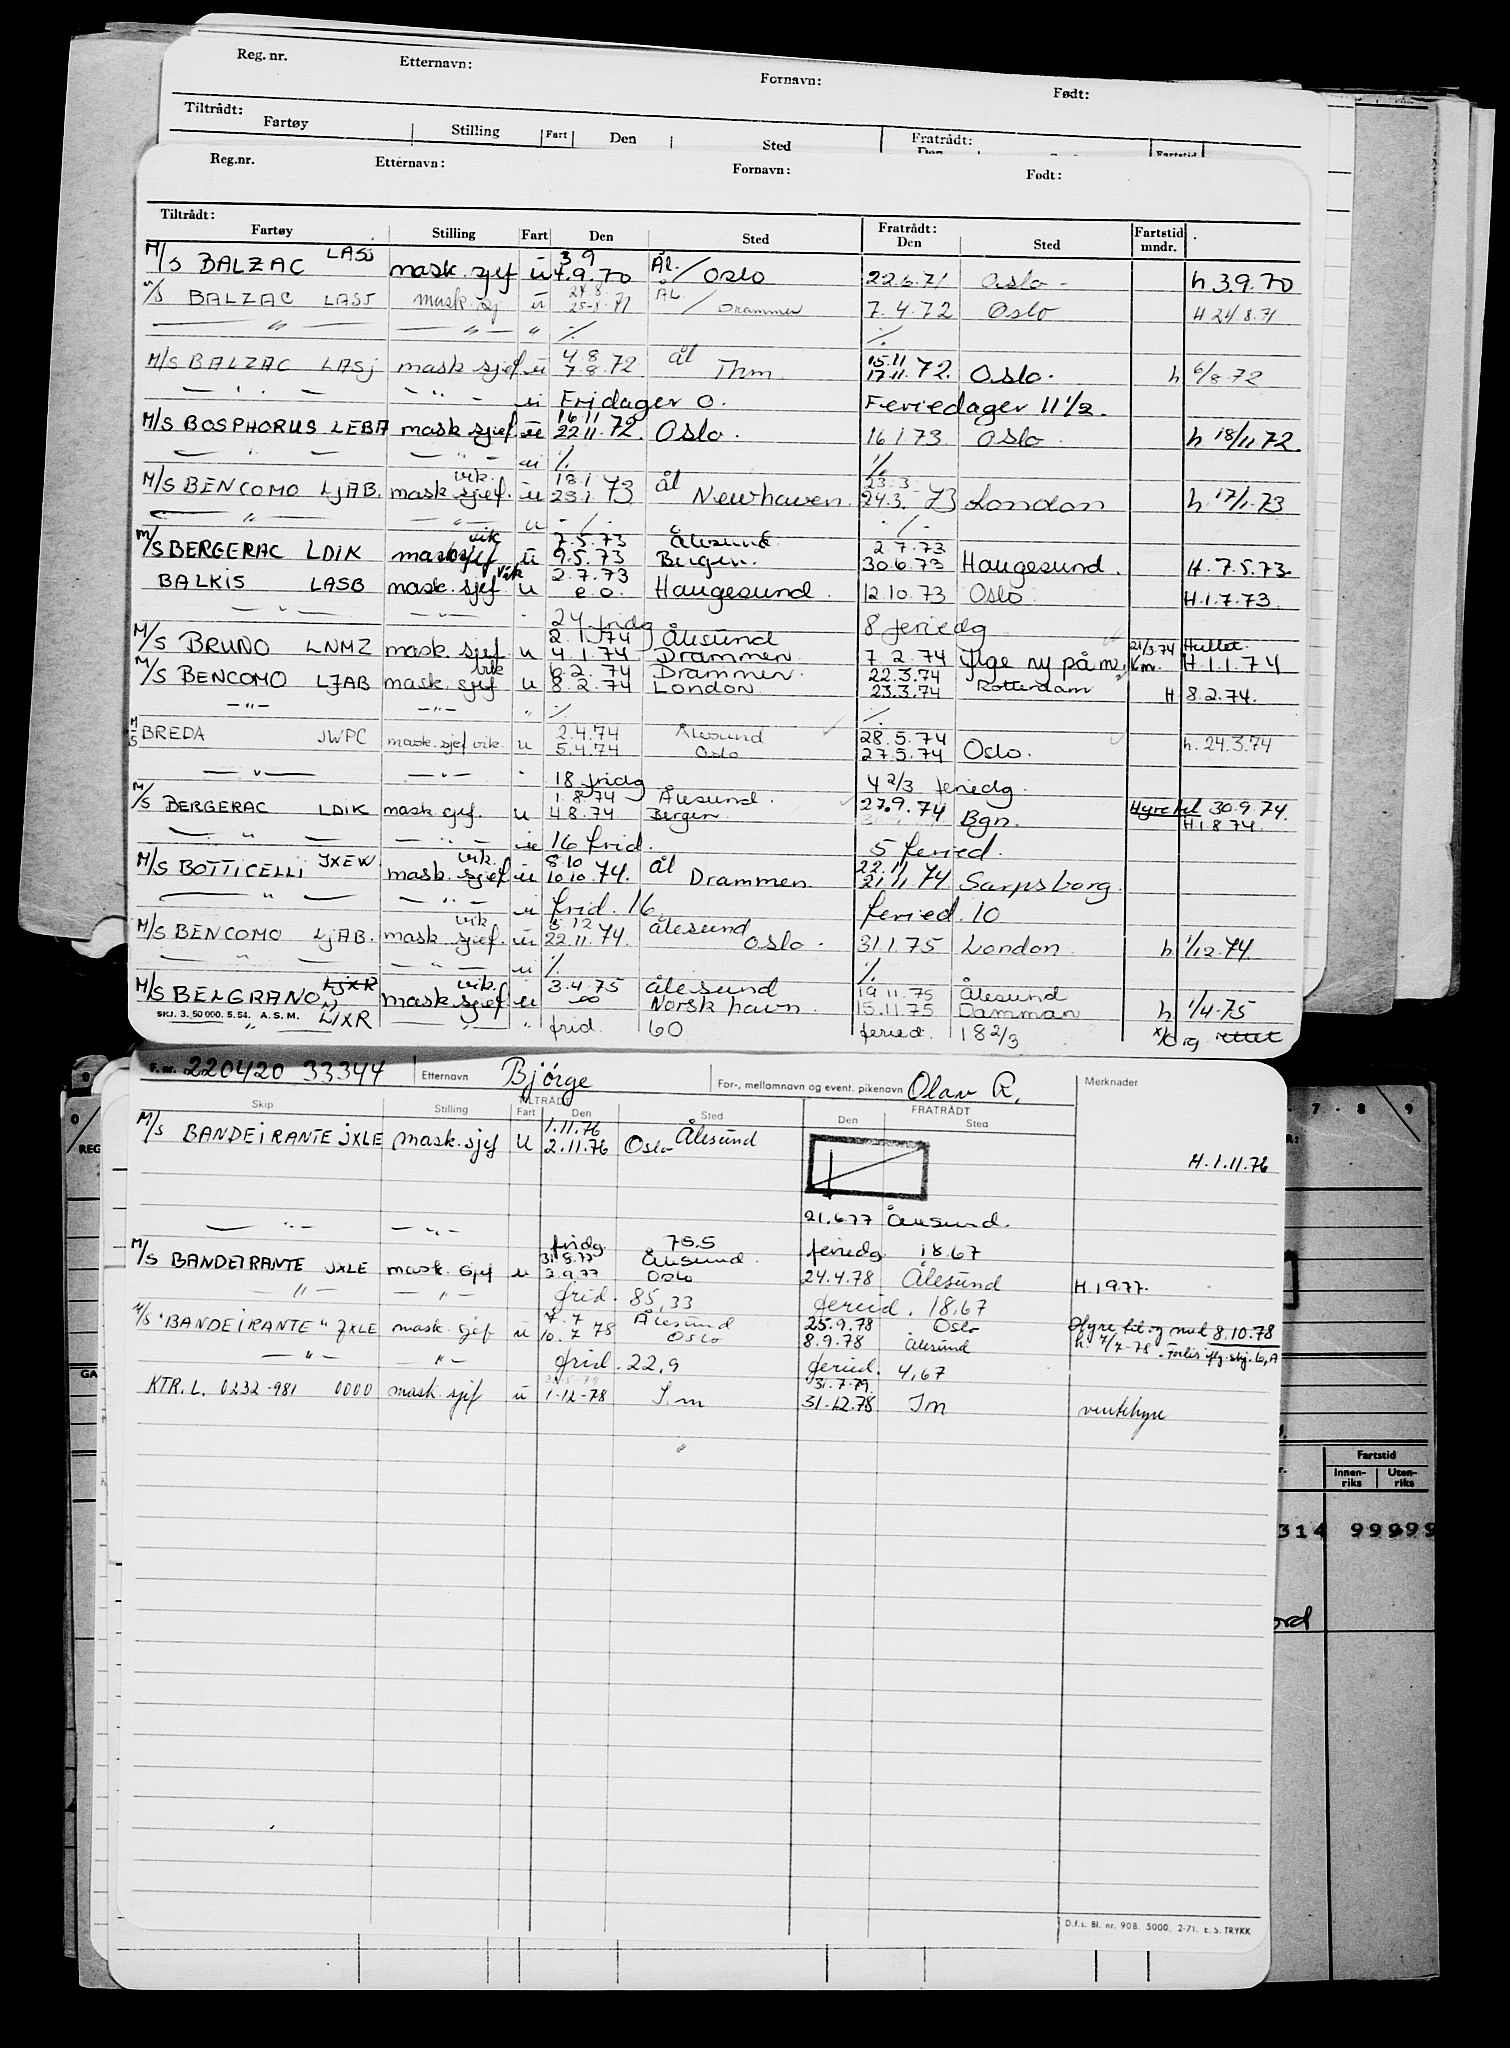 Reg. nr. Etternavn: Fornavn: Født:
Tiltrådt: Fratrådt:
Fartøy Stilling Fart Den Sted Den Fartstid
Reg.nr. Etternavn: Fornavn: Født:
Tiltrådt: Fratrådt: Fartstid
Fartøy Stilling Fart Den Sted Den Sted mndr.
M/S BALZAC LASJ mask. sjef ü 3 9 4.9.70 Ål. / Oslo 22.6.71 Oslo - h 3.9.70
M/S BALZAC LASJ mask. sj ü 24.8 25-8.71 ÅL / Drammen 7.4.72 Oslo H 24/8.71
— " — — " — " ./. ./.
M/S BALZAC LASj mask sjef ü 4 8 7 8.72 ål Thm. 15.11 17.11.72. Oslo. h 6/8.72
— " — — " — ü Fridager 0. Feriedager 11 1/2.
M/S BOSPHORUS LEBA mask sjef ü 16 11 22 11.72. Oslo. 16 1 73 Oslo h 18/11 72.
— " — — " — ü ./. ./.
M/S BENCOMO LjAB. mask sjef. vik. ü 18.1 23.1 73 ål Newhaven. 23.3 24.3. 73 London h. 17/1.73
— " — — " — u - / - - / -
M/S BERGERAC LDIK mask sjef vik ü 7.5.73 9.5.73 Ålesund Bergen. 2.7.73 30.6.73 Haugesund. H. 7.5.73.
BALKIS LASB mask. sjef vik u 2.7.73 e.o. Haugesund. 12.10.73 Oslo H.1.7.73.
— " — — " — - 24 fridg 8 feriedg
M/S BRUNO LNMZ mask. sjef. u 2.1.74 4.1.74 Ålesund Drammen. 7 2.74 Ilge ny på m. 21/3.74 Km. H.1.1.74
M/S BENCOMO LJAB mask. sjef vik u 6.2.74 8.2.74 Drammen. London 22.3.74 23.3.74 Rotterdam H 8.2.74.
— " — — " — " ./. ./.
M/S BREDA JWPC mask. sjef vik. u 2.4.74 5.4.74 Ålesund Oslo 28.5.74 27.5.74 Oslo. h. 24.3.74
— " — — " — - 18 fridg 4 2/3 feriedg.
M/S BERGERAC LDIK mask. sjef. u 1.8.74 4.8.74 Ålesund. Bergen 27.9.74 Bgn. Hyre til 30.9.74. H.1.8.74.
— " — — " — ü 16 frid. 5 feried.
M/S BOTTICELLI JXEW mask. sjef vik. ü 8.10 10.10.74. ål Drammen. 22.11 21.11 74 Sarpsborg.
— " — — " — u frid. 16. feried. 10
M/S BENCOMO LjAB. mask sjef. vik ü 5 12 22.11.74. ålesund Oslo. 31.1.75 London h 1/12.74
— " — — " — u ./. ./.
M/S BELGRANO LJXR mask sjef vik. ü 3.4.75 ålesund Norsk havn 19.11.75 15.11.75 Ålesund Damman h 1/4.75
SKJ. 3. 50 000. 5. 54. A. S. M. " LJXR — " — " frid. 60 feried. 18 2/3
F. nr. 220420 33344 Etternavn Bjørge For-, mellomnavn og event. pikenavn Olav R. Merknader
TILTRÅDT FRATRÅDT
Skip Stilling Fart Den Sted Den Sted
M/S BANDEIRANTE JXLE mask. sjef U 1.11.76 2.11.76 Oslo Ålesund H. 1.11.76
21.6.77 Ålesund.
— " — — " — fridg. 75.5 feriedg. 18.67
M/S BANDEIRANTE JXLE mask. sjef u 31.8.77 2.9.77 Ålesund. Oslo 24.4.78 Ålesund H.1.9.77.
— " — — " — frid. 85,33 feried. 18,67
M/S "BANDEIRANTE" JXLE mask. sjef ü 7.7 10.7 78 Ålesund Oslo 25.9.78 8.9.78 Oslo Ålesund Hyre til og med 8.10.78 h. 7/7-78
— " — — " — frid. 22,9 feried. 4,67
KTR. L. 0232-981 0000 mask. sjef ü 1-12-78 I.m 31.7.79 31.12.78 Im ventehyre
D.f.s. Bl. nr. 90B. 5000. 2-71. E. S. TRYKK
7 · 8 · 9
REG
GA
Fartstid
Innen-riks Uten-riks
314 99999
ord